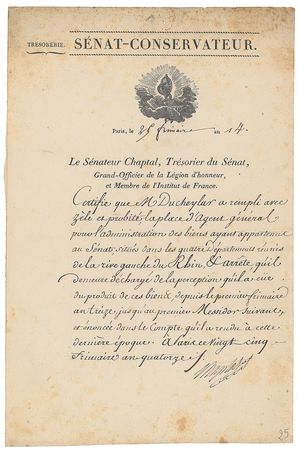 TRÉSORERIE. SÉNAT-CONSERVATEUR.
Paris, le 25 frimaire an 14.
Le Sénateur Chaptal, Trésorier du Sénat,
Grand-Officier de la Légion d'honneur,
et Membre de l'Institut de France.
Certifie que M. Ducheylar a rempli avec
zèle et probité, la place d'Agent général
pour l'administration des biens ayant appartenu
au Sénat, situés dans les quatre Départemens réunis
de la rive gauche du Rhin, & arrête qu'il
demeure déchargé de la perception qu'il a eue
du produit de ces biens, depuis le premier frimaire
an treize, jusqu'au premier Messidor suivant,
et énoncée dans le Compte qu'il a rendu à cette
dernière époque. à Paris ce vingt cinq
frimaire an quatorze
25